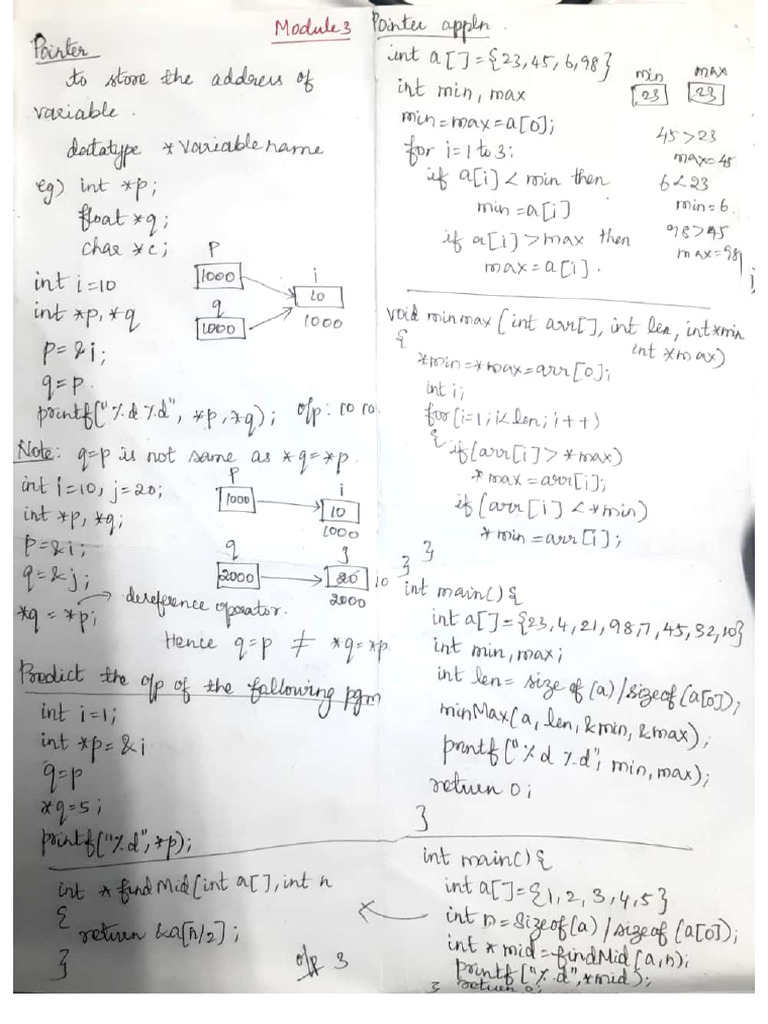 Module 3
Pointer
to store the address of
variable.
datatype *variable name
eg) int *p;
float *q;
char *c;
int i=10
int *p, *q
p=&i;
q=p.
printf("%d %d", *p,*q); o/p: 10 10.
p
1000
q
1000
i
10
1000
Note: q=p is not same as *q=*p.
int i=10, j=20;
int *p, *q;
p=&i;
q=&j;
*q = *p; → dereference operator.
p
1000
i
10
1000
q
2000
j
20 10
2000
Hence q=p ≠ *q=*p
Predict the o/p of the following pgm
int i=1;
int *p=&i
q=p
*q=5;
printf("%d",*p);
int *findMid(int a[],int n
{
return &a[n/2];
}
o/p 3
Pointer appln.
int a[]={23,45,6,98}
int min, max
min=max=a[0];
for i=1 to 3:
if a[i]<min then
min=a[i]
if a[i]>max then
max=a[i].
min max
23 23
45>23
max=45
6<23
min=6.
98>45
max=98
void minmax(int arr[], int len, int*min
int *max)
{
*min=*max=arr[0];
int i;
for(i=1;i<len;i++)
{ if(arr[i]>*max)
*max=arr[i];
if (arr[i]<*min)
*min=arr[i];
}
}
int main(){
int a[]={23,4,21,98,7,45,32,10}
int min,max;
int len= size of (a)/sizeof(a[0]);
minMax(a, len, &min, &max);
printf("%d %d", min,max);
return 0;
}
int main(){
int a[]={1,2,3,4,5}
int n=Sizeof(a)/sizeof(a[0]);
int * mid=findMid(a,n);
printf("%d",*mid);
} return 0;